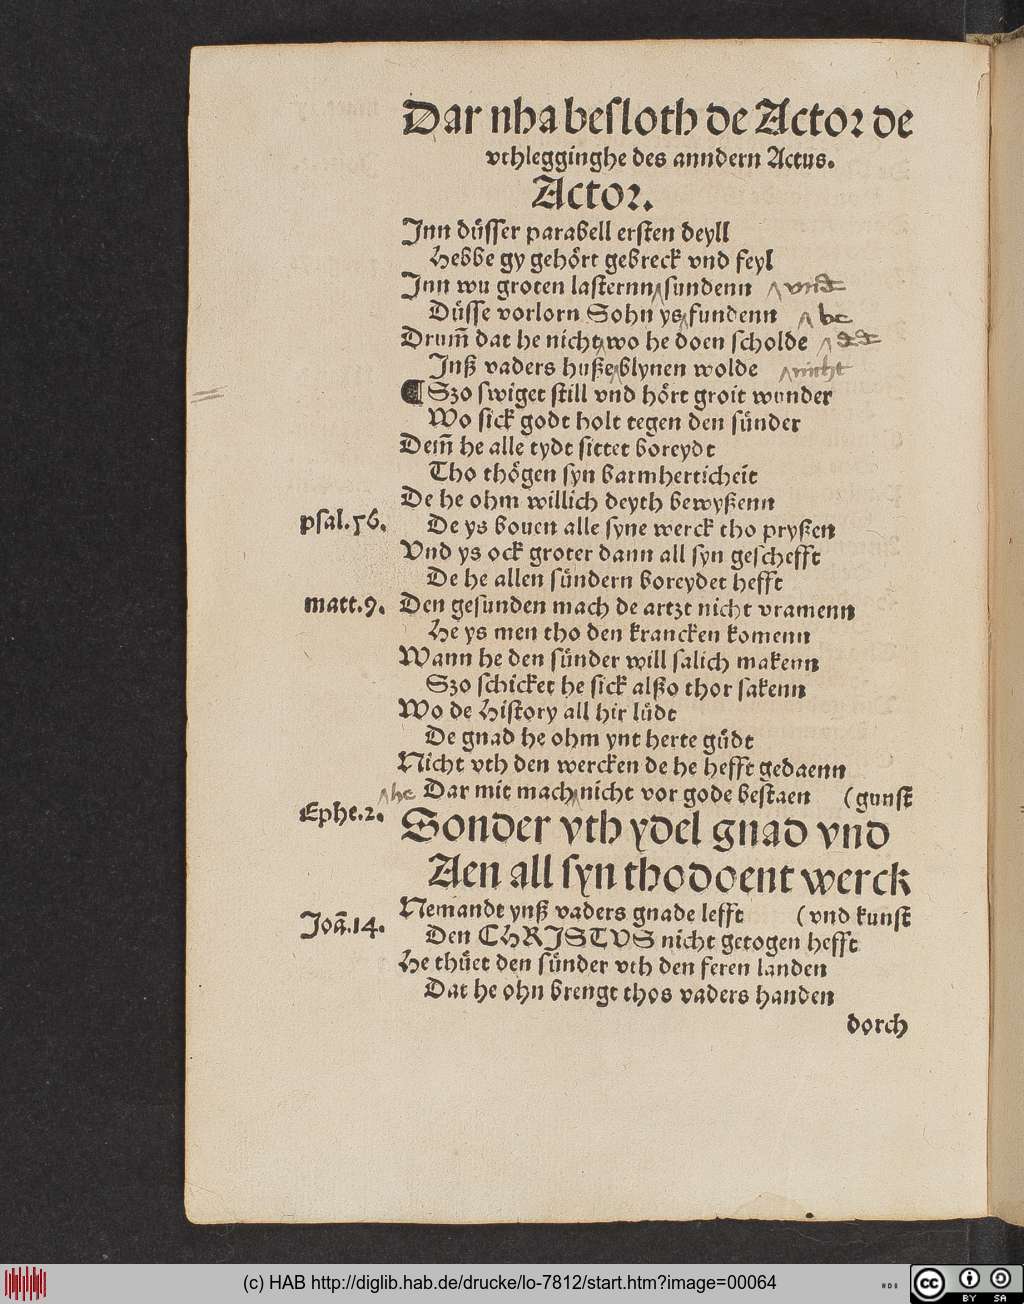 Dar nha besloth de Actor de
vthlegginghe des anndern Actus.
Actor.
Jnn duͤsser parabell ersten deyll
Hebbe gy gehoͤrt gebreck vnd feyl
Jnn wu groten lasternn sundenn ^ vnd
Duͤsse vorlorn Sohn ys fundenn ^ be
Drum̃ dat he nicht wo he doen scholde ^
Jnß vaders huße blynen wolde ^ nicht
¶ Szo swiget still vnd hoͤrt groit wunder
Wo sick godt holt tegen den suͤnder
Dem̃ he alle tydt sittet boreydt
Tho thoͤgen syn barmherticheit
De he ohm willich deyth bewyßenn
psal.56. De ys bouen alle syne werck tho pryßen
Vnd ys ock groter dann all syn geschefft
De he allen suͤndern boreydet hefft
matt.9. Den gesunden mach de artzt nicht vramenn
He ys men tho den krancken komenn
Wann he den suͤnder will salich makenn
Szo schicket he sick alßo thor sakenn
Wo de History all hir luͤdt
De gnad he ohm ynt herte guͤdt
Nicht vth den wercken de he hefft gedaenn
^ he Dar mit mach nicht vor gode bestaen (gunst
Ephe.2. Sonder vth ydel gnad vnd
Aen all syn thodoent werck
Nemandt ynß vaders gnade lefft (vnd kunst
Joã.14. Den CHRJSTVS nicht getogen hefft
He thuͤet den suͤnder vth den feren landen
Dat he ohn brengt thos vaders handen
dorch
(c) HAB http://diglib.hab.de/drucke/lo-7812/start.htm?image=00064
HAB
cc BY SA